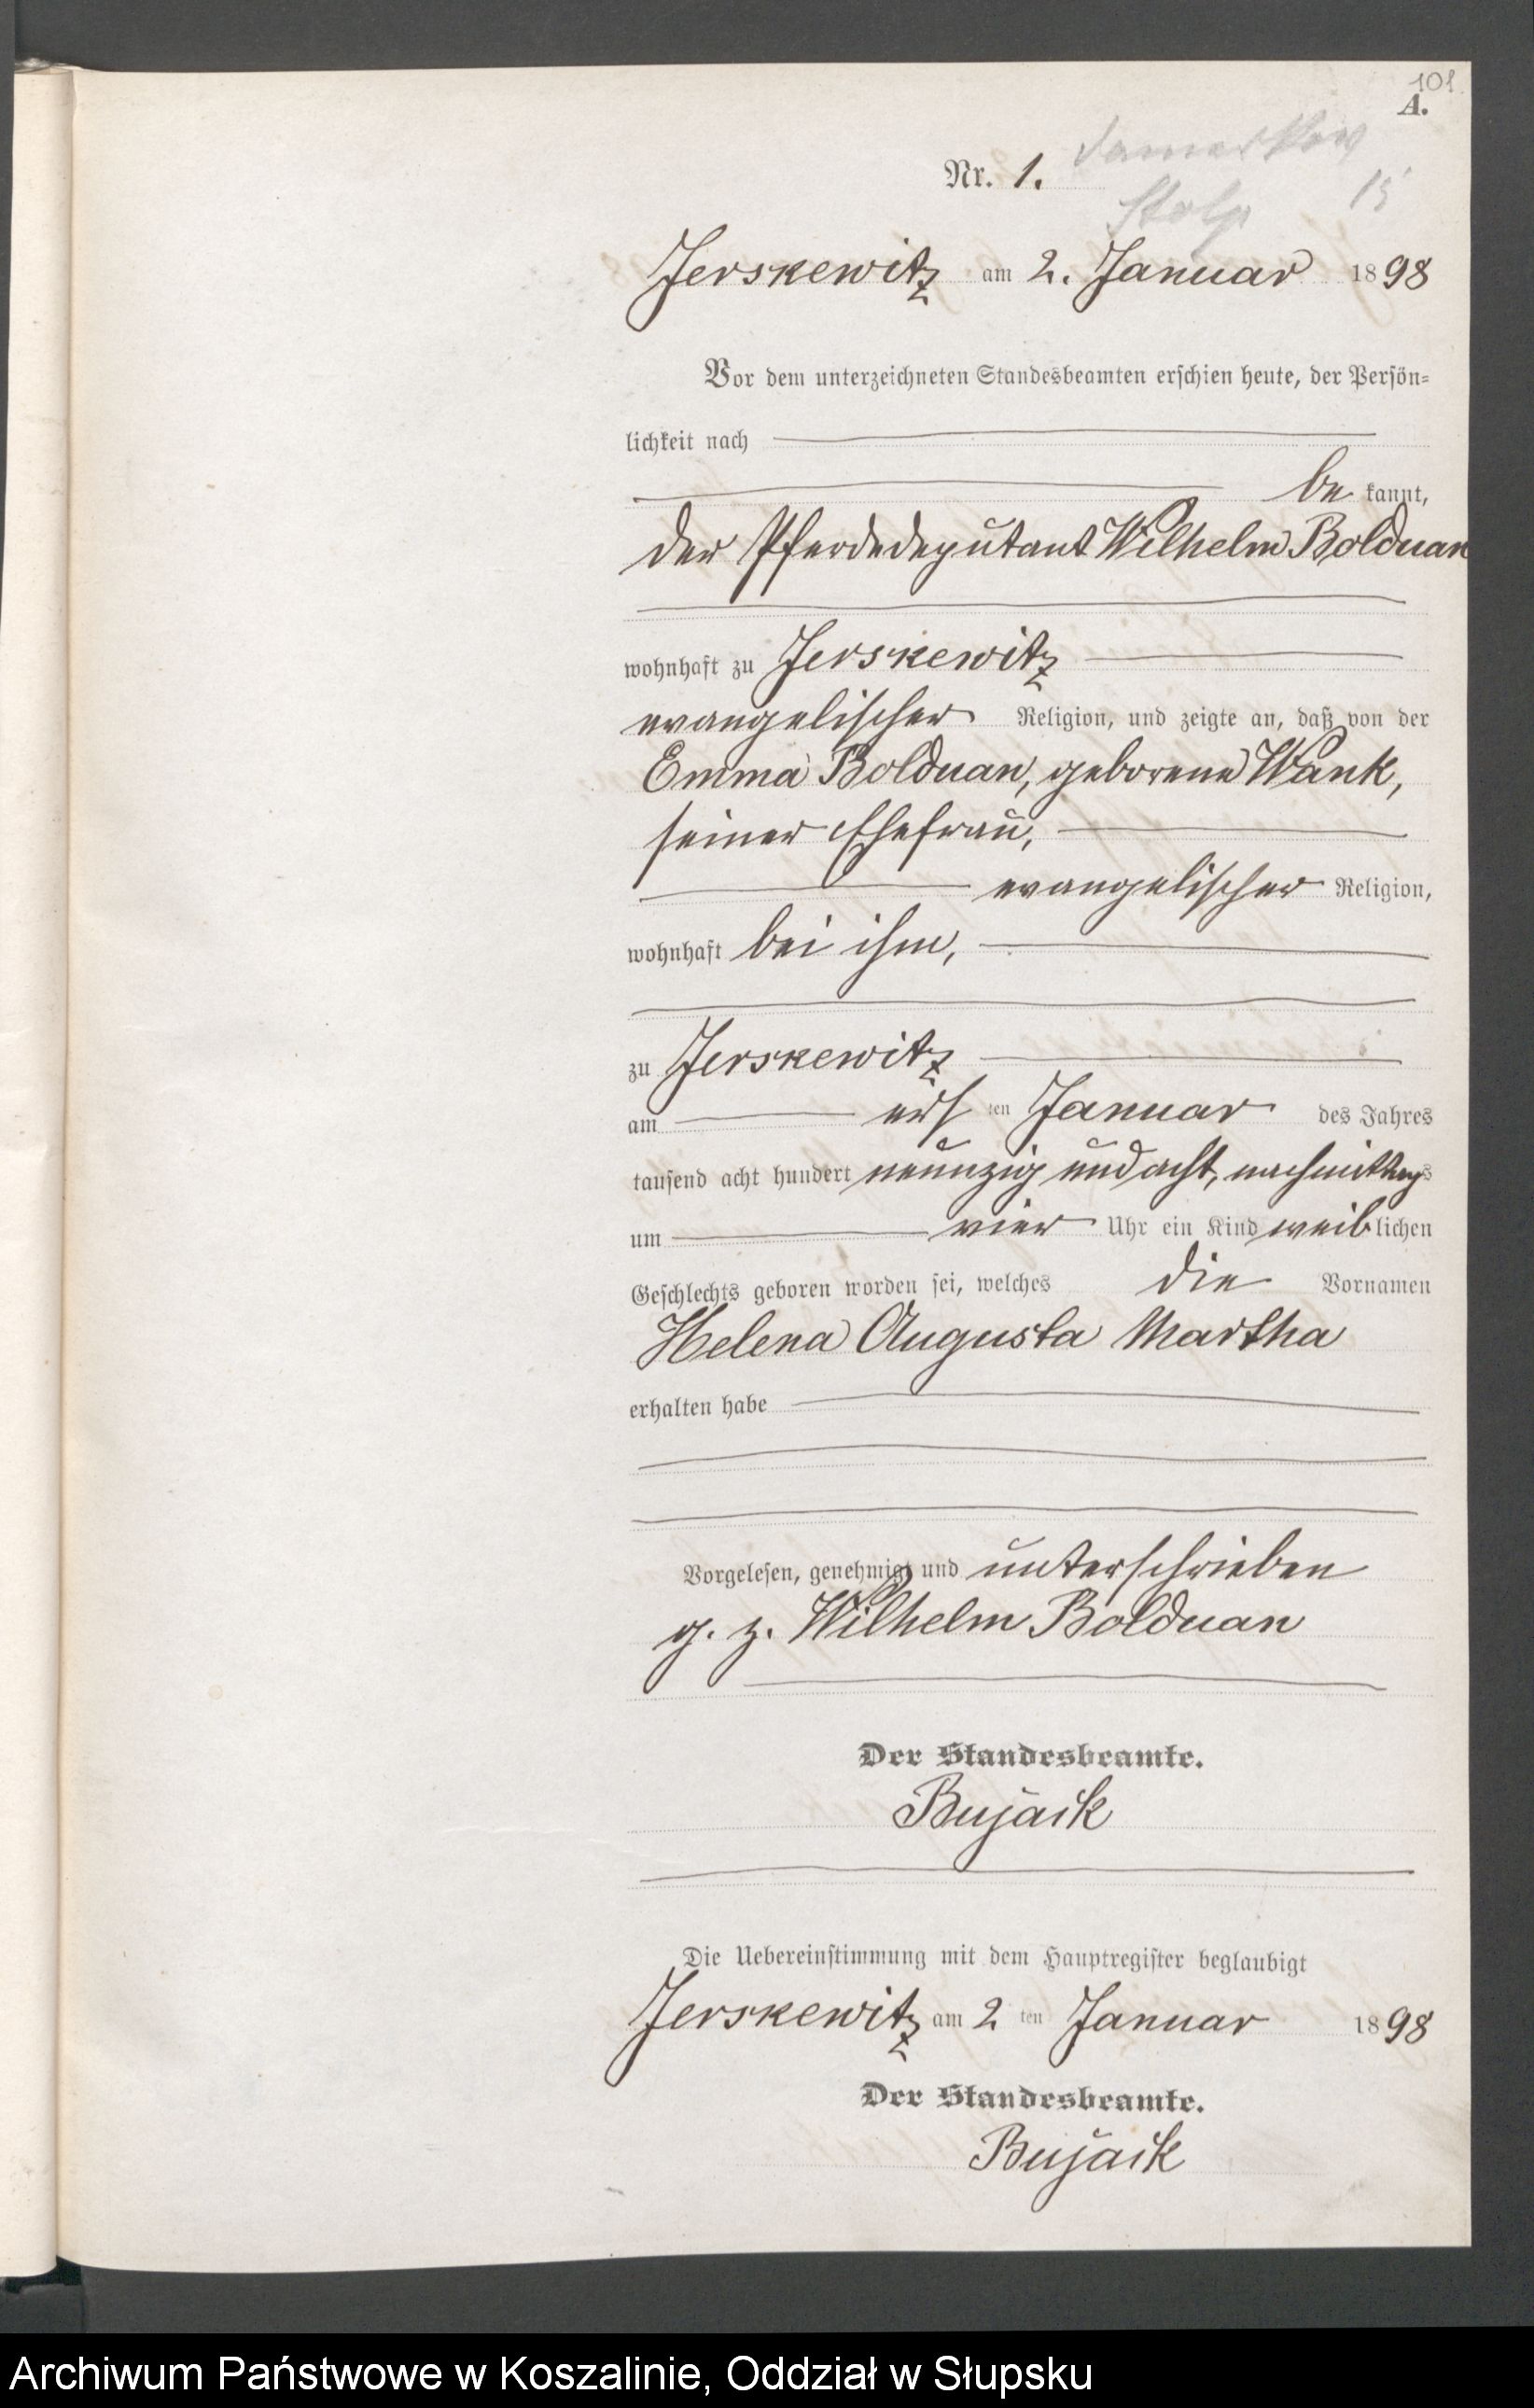 101
A.
Nr. 1.
Stolp 15
Jerskewitz am 2. Januar 1898
Vor dem unterzeichneten Standesbeamten erschien heute, der Persön-
lichkeit nach
be kannt,
der Pferdedeputant Wilhelm Bolduan
wohnhaft zu Jerskewitz
evangelischer Religion, und zeigte an, daß von der
Emma Bolduan, geborene Wank,
seiner Ehefrau,
evangelischer Religion,
wohnhaft bei ihm,
zu Jerskewitz
am ersten Januar des Jahres
tausend acht hundert neunzig und acht, nachmittags
um vier Uhr ein Kind weiblichen
Geschlechts geboren worden sei, welches die Vornamen
Helena Augusta Martha
erhalten habe
Vorgelesen, genehmigt und unterschrieben
g. z. Wilhelm Bolduan
Der Standesbeamte.
Bujack
Die Uebereinstimmung mit dem Hauptregister beglaubigt
Jerskewitz am 2 ten Januar 1898
Der Standesbeamte.
Bujack
Archiwum Państwowe w Koszalinie, Oddział w Słupsku